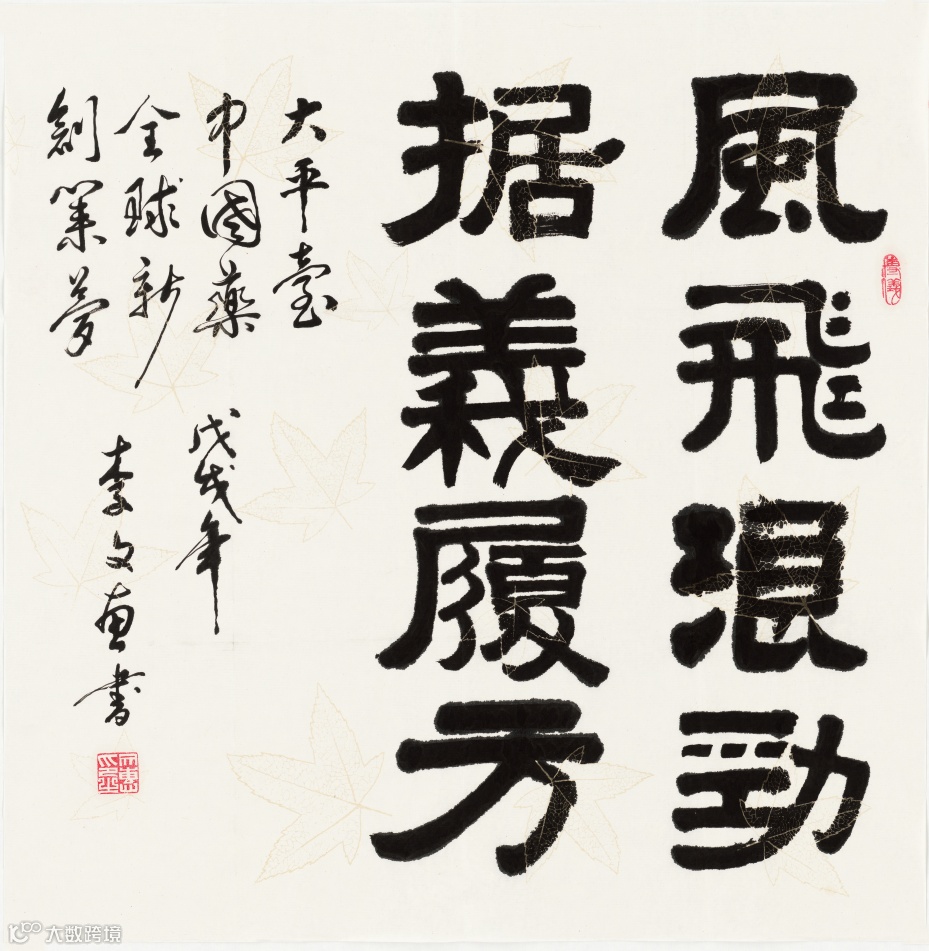 風飛浪勁
据義履方
大平臺
中國藥 戊戌年
全球新
創業夢
李文惠書
大数跨境